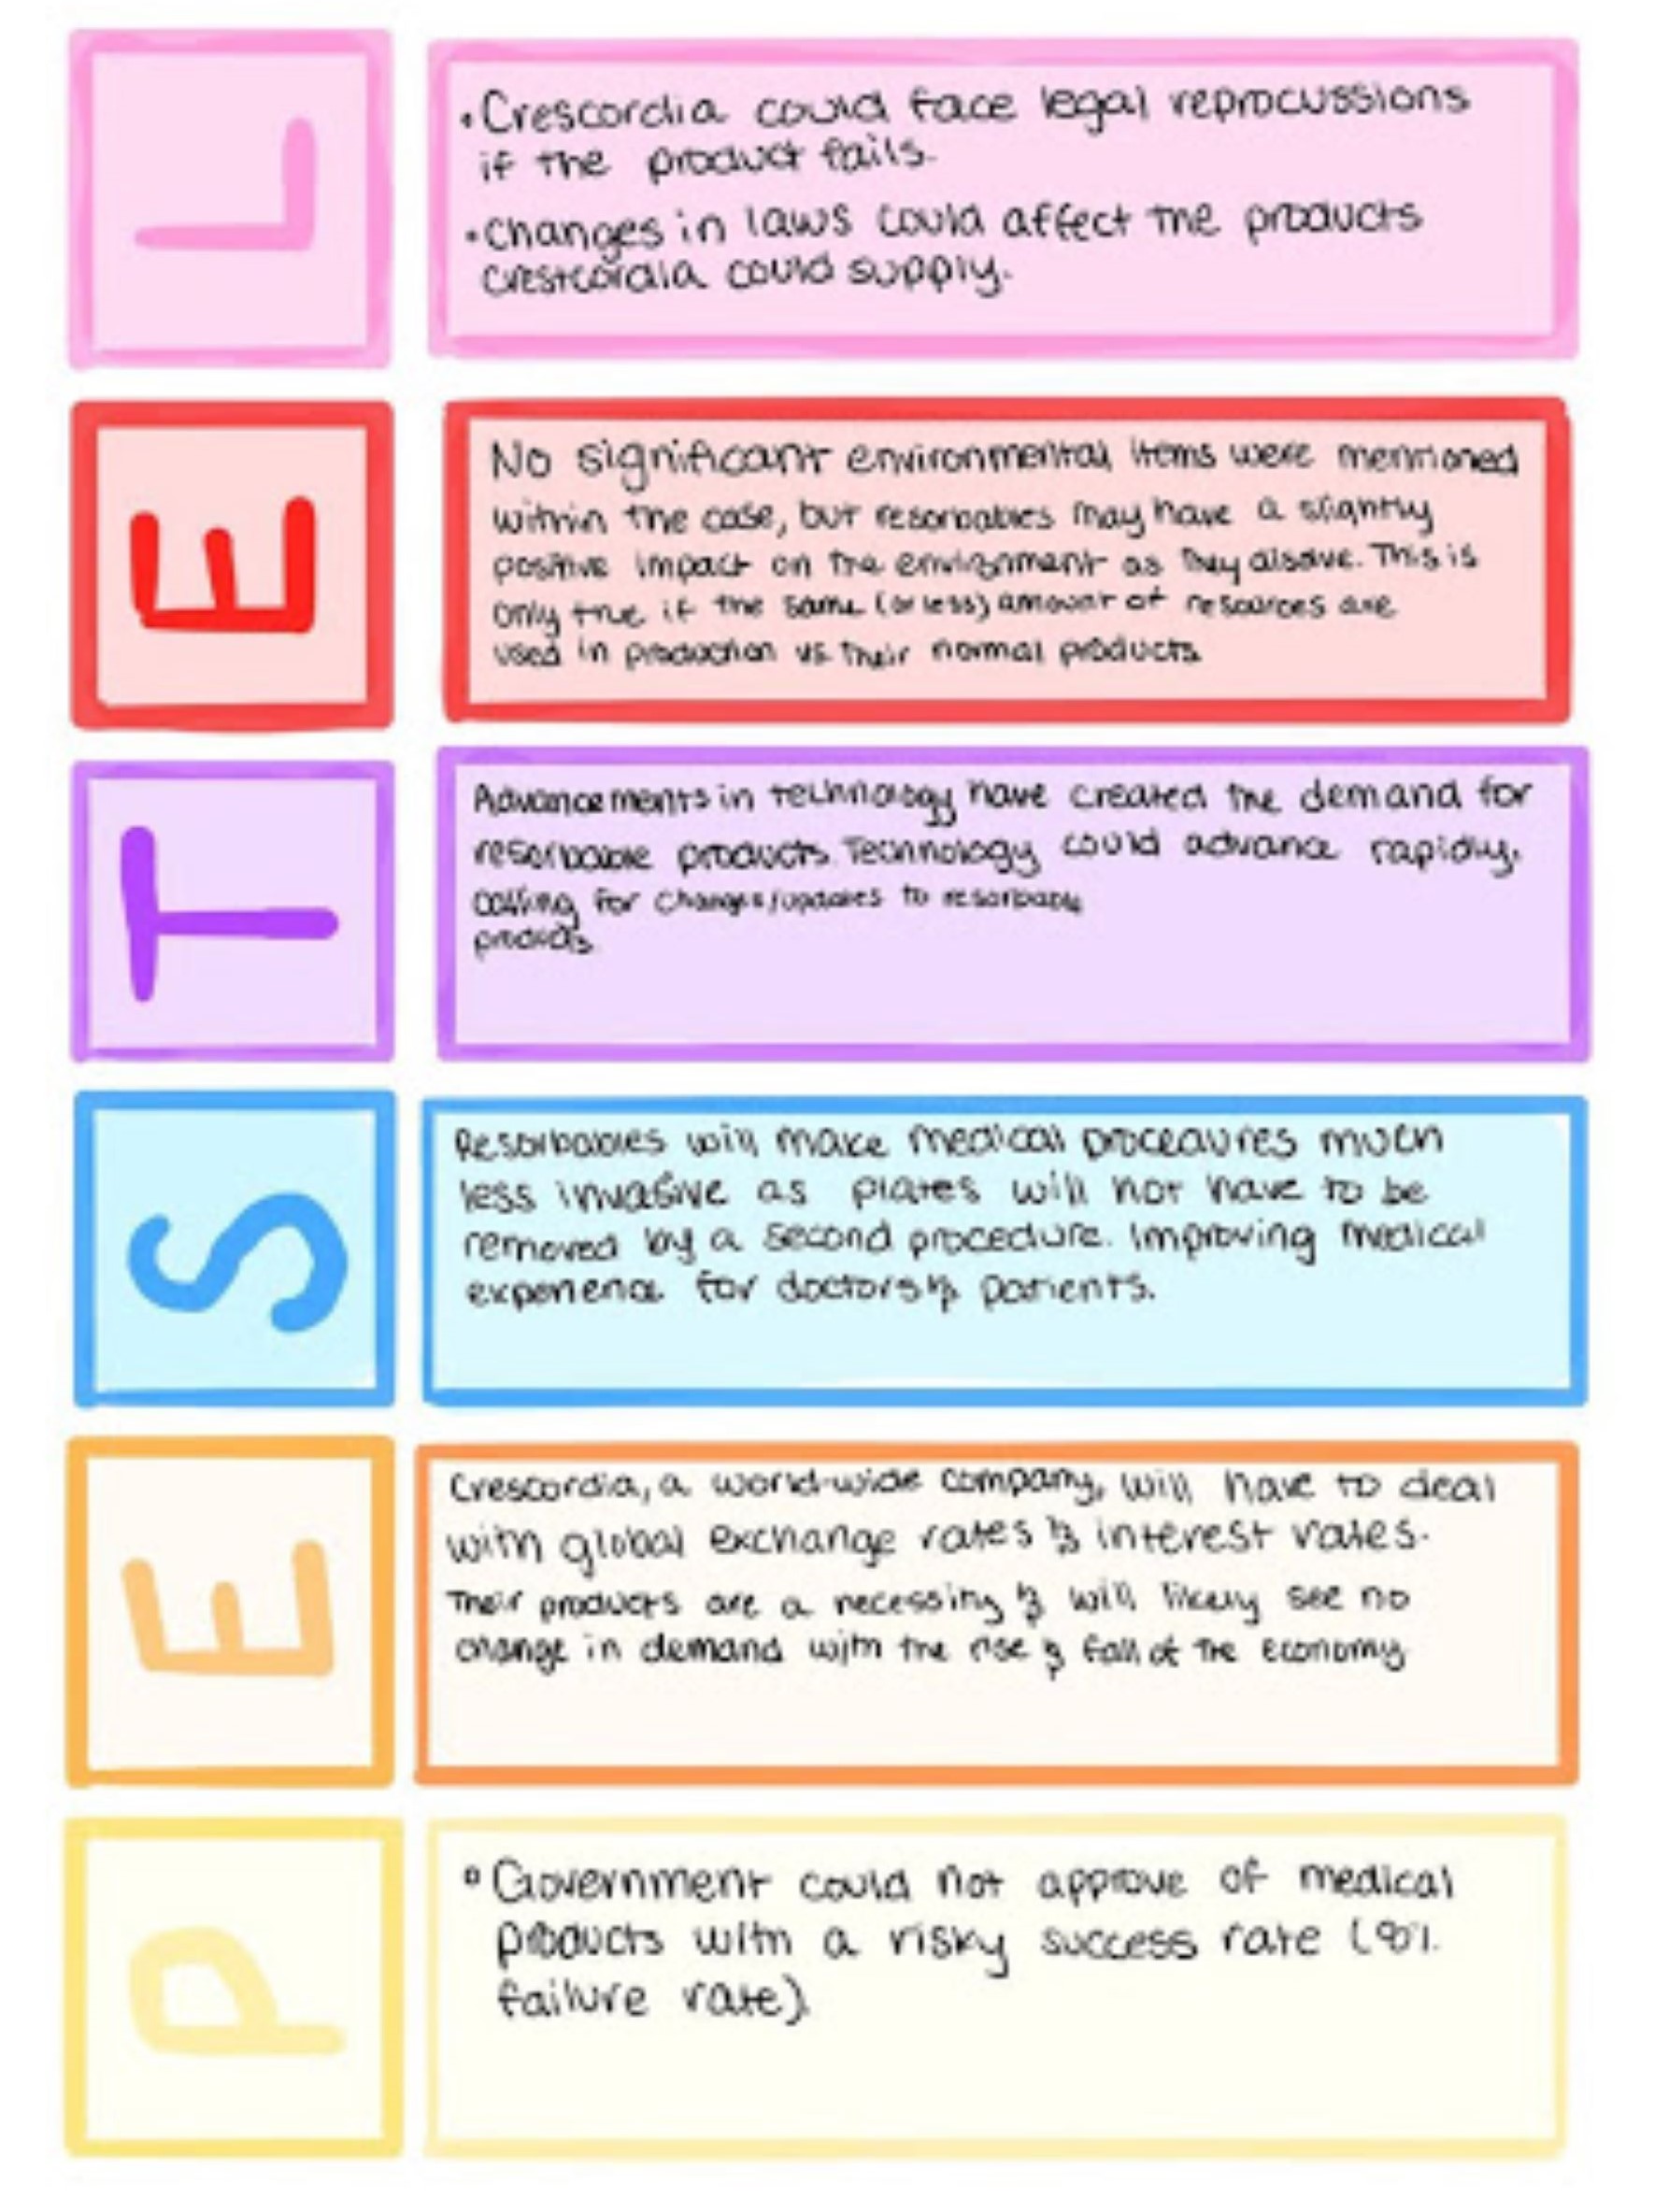 L
•Crescordia could face legal reprocussions
if the product fails.
•Changes in laws could affect the products
crestcordia could supply.
E
No significant environmental items were mentioned
within the case, but resorbables may have a slightly
positive impact on the environment as they disolve. This is
only true if the same (or less) amount of resources are
used in production vs. their normal products.
T
Advancements in technology have created the demand for
resorbable products. Technology could advance rapidly,
calling for changes/updates to resorbable
products.
S
Resorbables will make medical procedures much
less invasive as plates will not have to be
removed by a second procedure. Improving medical
experience for doctors & patients.
E
Crescordia, a world-wide company, will have to deal
with global exchange rates & interest rates.
Their products are a necessing & will likely see no
change in demand with the rise & fall of the economy.
P
• Government could not approve of medical
products with a risky success rate (
failure rate).